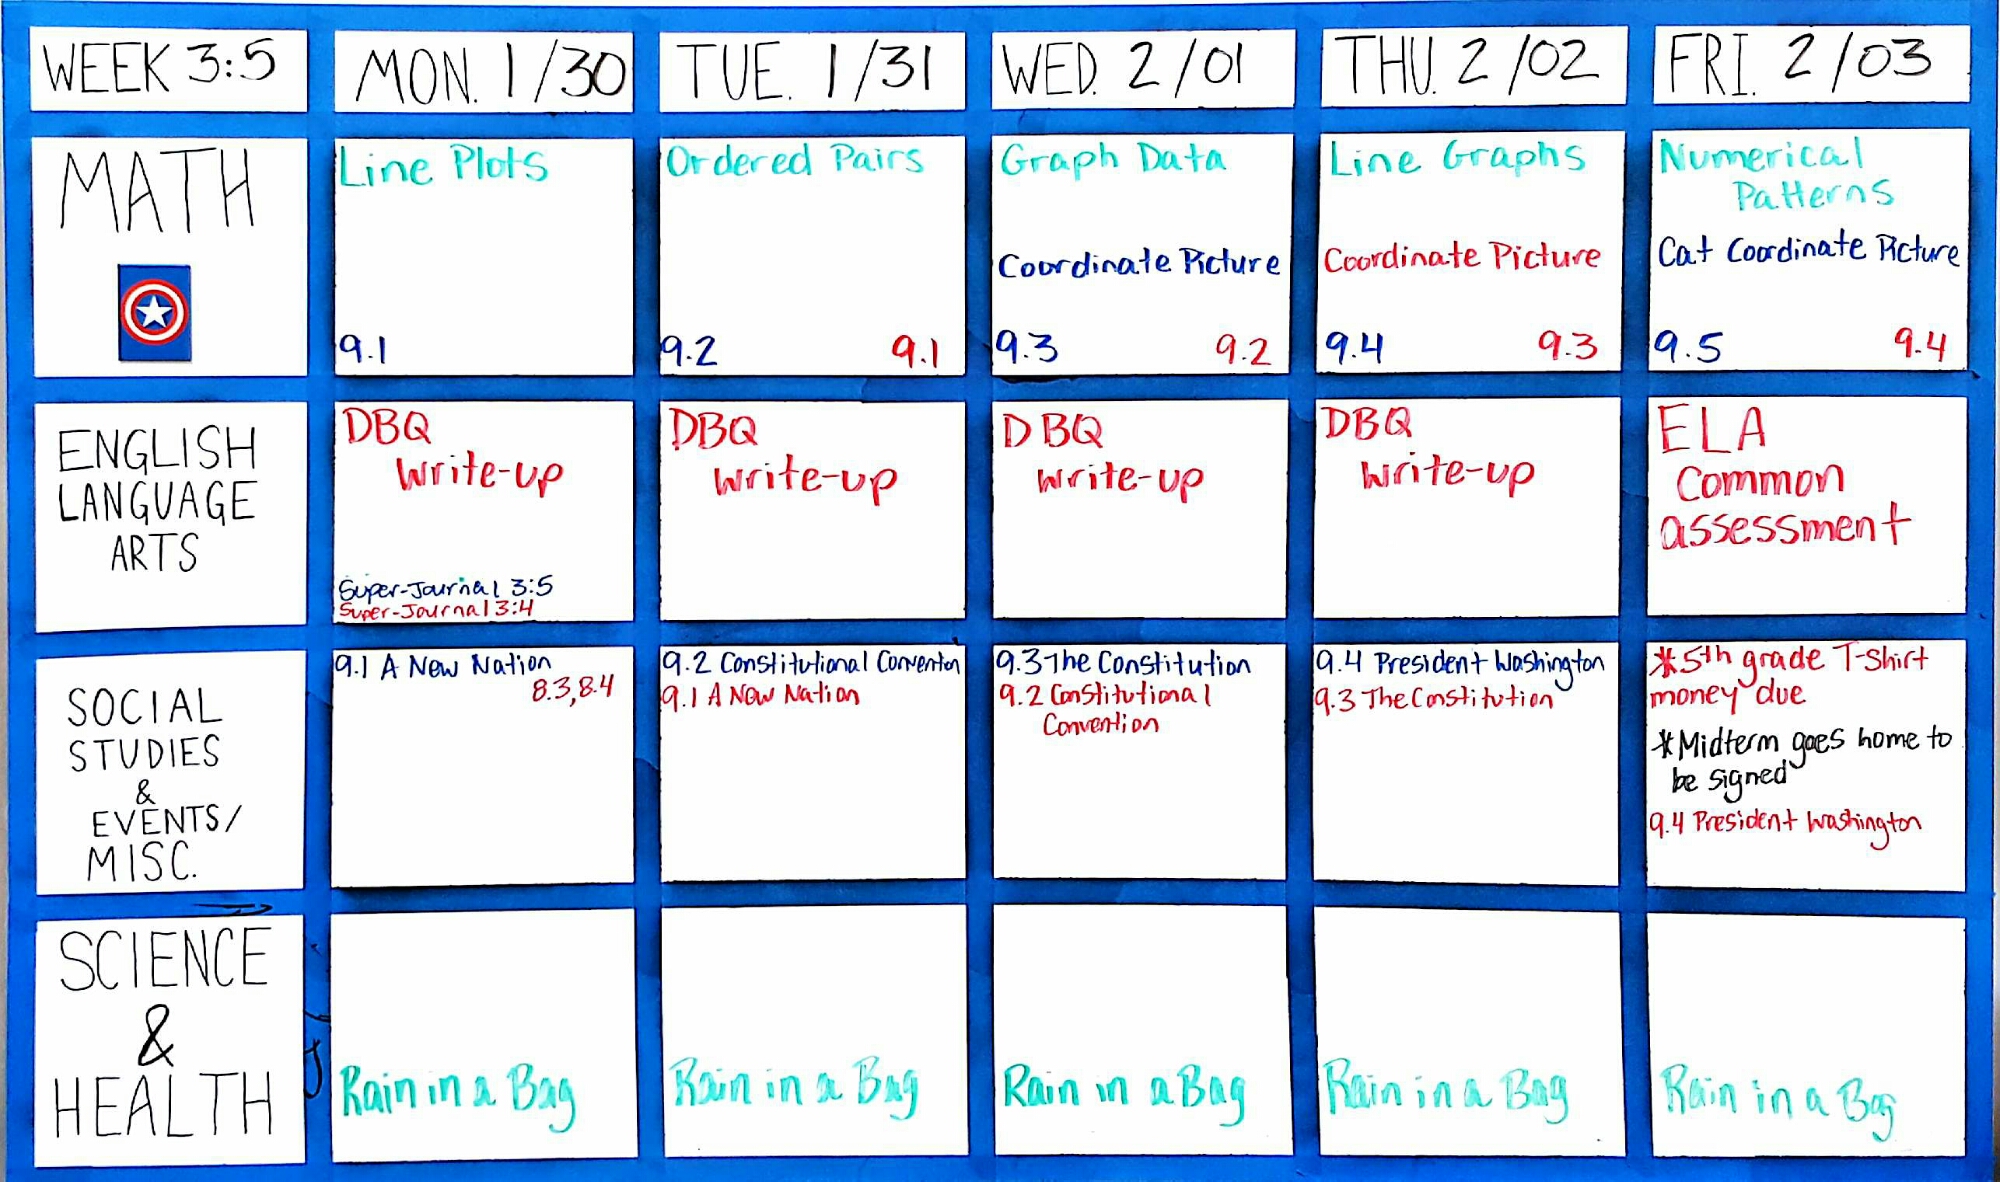 WEEK 3:5
MON. 1/30
TUE. 1/31
WED. 2/01
THU. 2/02
FRI. 2/03
MATH
Line Plots
9.1
Ordered Pairs
9.2 9.1
Graph Data
Coordinate Picture
9.3 9.2
Line Graphs
Coordinate Picture
9.4 9.3
Numerical
Patterns
Cat Coordinate Picture
9.5 9.4
ENGLISH
LANGUAGE
ARTS
DBQ
Write-up
Super-Journal 3:5
Super-Journal 3:4
DBQ
Write-up
DBQ
Write-up
DBQ
Write-up
ELA
Common
assessment
SOCIAL
STUDIES
&
EVENTS/
MISC.
9.1 A New Nation
8.3, 8.4
9.2 Constitutional Convention
9.1 A New Nation
9.3 The Constitution
9.2 Constitutional
Convention
9.4 President Washington
9.3 The Constitution
*5th grade T-Shirt
money due
*Midterm goes home to
be signed
9.4 President Washington
SCIENCE
&
HEALTH
Rain in a Bag
Rain in a Bag
Rain in a Bag
Rain in a Bag
Rain in a Bag